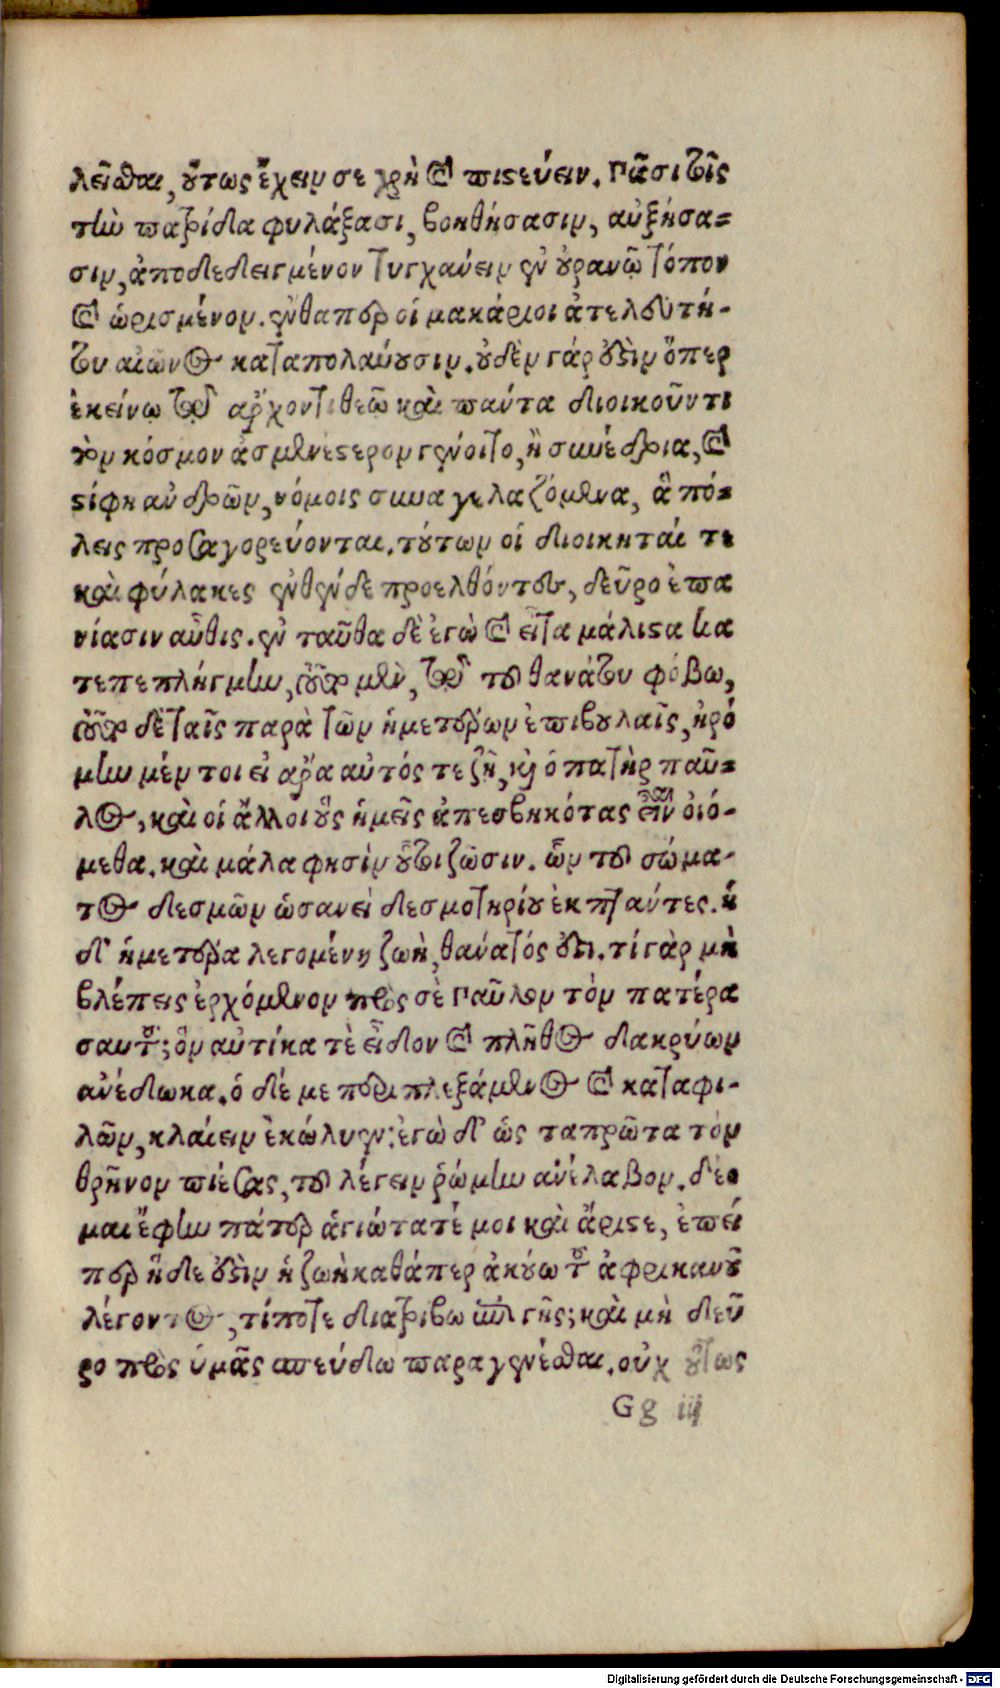 λεῖσθαι, οὕτως ἔχειν σε χρὴ καὶ πιστεύειν. Πᾶσι τοῖς
τὴν πατρίδα φυλάξασι, βοηθήσασιν, αὐξήσα=
σιν, ἀποδεδειγμένον τυγχάνειν ἐν οὐρανῷ τόπον
καὶ ὡρισμένον. ἔνθαπερ οἱ μακάριοι ἀτελευτή-
του αἰῶνος καταπολαύουσιν. οὐδὲν γάρ ἐστιν ὅπερ
ἐκείνῳ τῷ ἄρχοντι θεῷ καὶ πάντα διοικοῦντι
τὸν κόσμον ἀσμενέστερον γένοιτο, ἢ συνέδρια, καὶ
στίφη ἀνδρῶν, νόμοις συναγελαζόμενα, ἃ πό=
λεις προσαγορεύονται. τούτων οἱ διοικηταί τε
καὶ φύλακες ἐνθένδε προελθόντες, δεῦρο ἐπα
νίασιν αὖθις. ἐν ταῦθα δὲ ἐγὼ καὶ εἶτα μάλιστα κα
τεπεπλήγμην, οὐ μὲν, τῷ τοῦ θανάτου φόβῳ,
δὲ ταῖς παρὰ τῶν ἡμετέρων ἐπιβουλαῖς, ἠρό
μην μέν τοι εἰ ἄρα αὐτός τε ζῇ, καὶ ὁ πατὴρ παῦ=
λος, καὶ οἱ ἄλλοι οὓς ἡμεῖς ἀπεσβηκότας εἶναι οἰό-
μεθα. καὶ μάλα φησὶν οὗτοι ζῶσιν. ὧν τοῦ σώμα-
τος δεσμῶν ὡσανεὶ δεσμοτηρίου ἐκπτάντες. ἡ
δ' ἡμετέρα λεγομένη ζωὴ, θάνατός ἐστι. τί γὰρ μὴ
βλέπεις ἐρχόμενον πρὸς σὲ Παῦλον τὸν πατέρα
σαυτοῦ; ὃν αὐτίκα τὲ εἶδον καὶ πλῆθος δακρύων
ἀνέδωκα. ὁ δέ με περιπλεξάμενος καὶ καταφι-
λῶν, κλαίειν ἐκώλυεν: ἐγὼ δ' ὡς ταπρῶτα τὸν
θρῆνον πιέσας, τοῦ λέγειν ῥώμην ἀνέλαβον. δέο
μαι ἔφην πάτερ ἁγιώτατέ μοι καὶ ἄριστε, ἐπεί
περ ἥδε ἐστὶν ἡ ζωὴ καθάπερ ἀκούω τοῦ ἀφρικανοῦ
λέγοντος, τίποτε διατρίβω ἐπὶ γῆς; καὶ μὴ δεῦ
ρο πρὸς ὑμᾶς σπεύδω παραγενέσθαι. οὐχ οὕτως
Gg iij
Digitalisierung gefördert durch die Deutsche Forschungsgemeinschaft - DFG